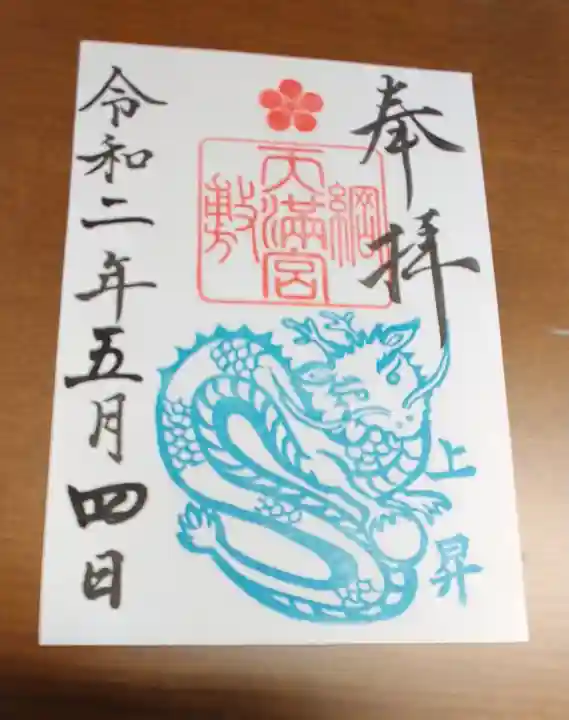 奉拝
綱敷天満宮
上昇
令和二年五月四日